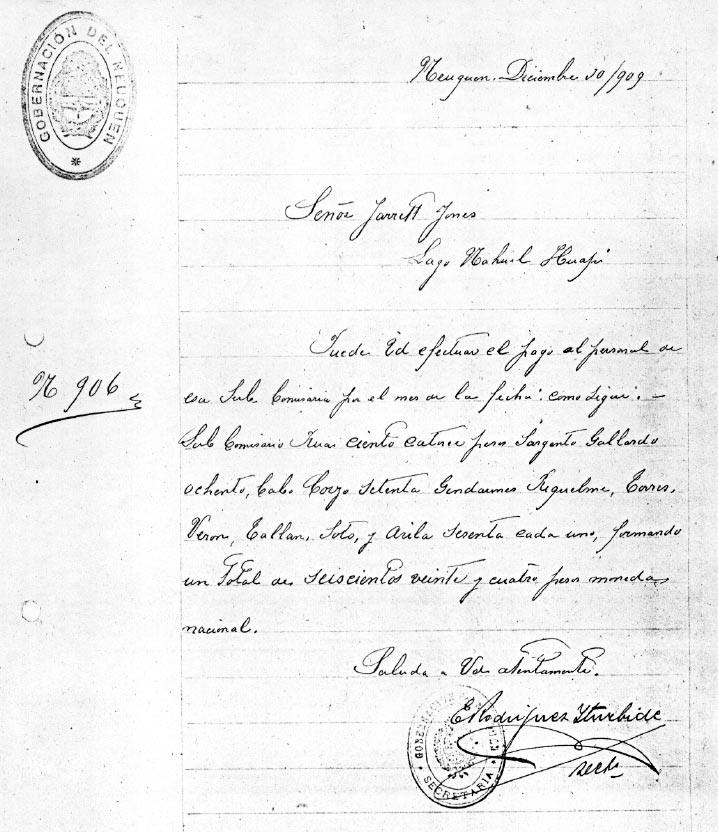 GOBERNACIÓN DEL NEUQUEN
Neuquen, Diciembre 30/909
Señor Jarrett Jones
Lago Nahuel Huapi
Puede Vd efectuar el pago al personal de
Nº 906
esa Sub Comisaria por el mes de la fecha: como sigue: -
Sub Comisario ciento catorce pesos Sargento Gallardo
ochenta, Cabo setenta Gendarmes Riquelme, Torres,
Veron, Tallan, Soto, y Avila sesenta cada uno, formando
un Total de seiscientos veinte y cuatro pesos moneda
nacional.
Saluda a Vd atentamente.
E Rodriguez Yturbide
secto
GOBERNACION DEL
SECRETARIA